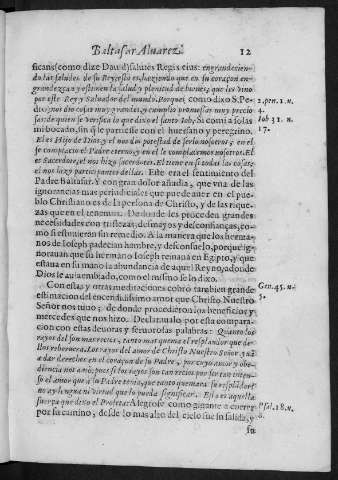 Baltasar Aluarez. 12
ficans (como dize Dauid) salutes Regis eius: engrandecien-
do las saludes de su Rey, esto es, haziendo que en su coraçon en-
grandezcan y estimen la salud y plenitud de bienes, que les vino
por este Rey y Saluador del mundo. Porque, como dixo S. Pe-
dro, nos dio cosas muy grandes, y cumplio promessas muy precio-
sas: de quien se verifica lo que dixo el santo Iob, Si comi a solas
mi bocado, sin q̃ le partiesse con el huesano y peregrino.
El es Hijo de Dios, y el nos dio potestad de serlo nosotros; en el se
complacio el Padre eterno, y en el se complacemos nosotros. El
es Sacerdote, el nos hizo sacerdotes. El tiene en si todas las cosas,
el nos hizo participantes dellas. Este era el sentimiento del
Padre Baltasar. Y con gran dolor añadia, que vna de las
ignorancias mas perjudiciales que puede auer en el pue-
blo Christiano es de la persona de Christo, y de las rique-
zas que en el tenemos. De donde les proceden grandes
necessidades con tristezas, desmayos y desconfianças, co-
mo si estuuieran sin remedio. A la manera que los herma-
nos de Ioseph padecian hambre, y desconsuelo, porque ig-
norauan que su hermano Ioseph reinaua en Egipto, y que
estaua en su mano la abundancia de aquel Reyno, adonde
Dios le auia embiado, como el mismo se lo dixo.
Con estas y otras meditaciones cobrò tambien grande
estimacion del encendidissimo amor que Christo Nuestro
Señor nos tuuo; de donde procedieron los beneficios y
mercedes que nos hizo. Declaraualo por esta compara-
cion con estas deuotas y feruorosas palabras: Quanto los
rayos del Sol mas recios, tanto mas quema el resplandor que de
llos reberuera. Los rayos del amor de Christo Nuestro Señor
dar derechos en el coraçon de su Padre, por cuyo amor y obe-
diencia nos amò; pues si los rayos son tan recios por ser tan inten-
so el amor que a su Padre tenia, que tanto quemarà su resplandor
no ay lengua ni virtud que lo pueda significar. Esto es aquella
que dixo el Profeta: Alegròse como gigante a correr
por su camino; desde lo mas alto del cielo fue su salida, y
su
2. pet. 1. n.
4.
Iob 31. n.
17.
Gen. 45. n.
5.
Psal. 18. n.
6.